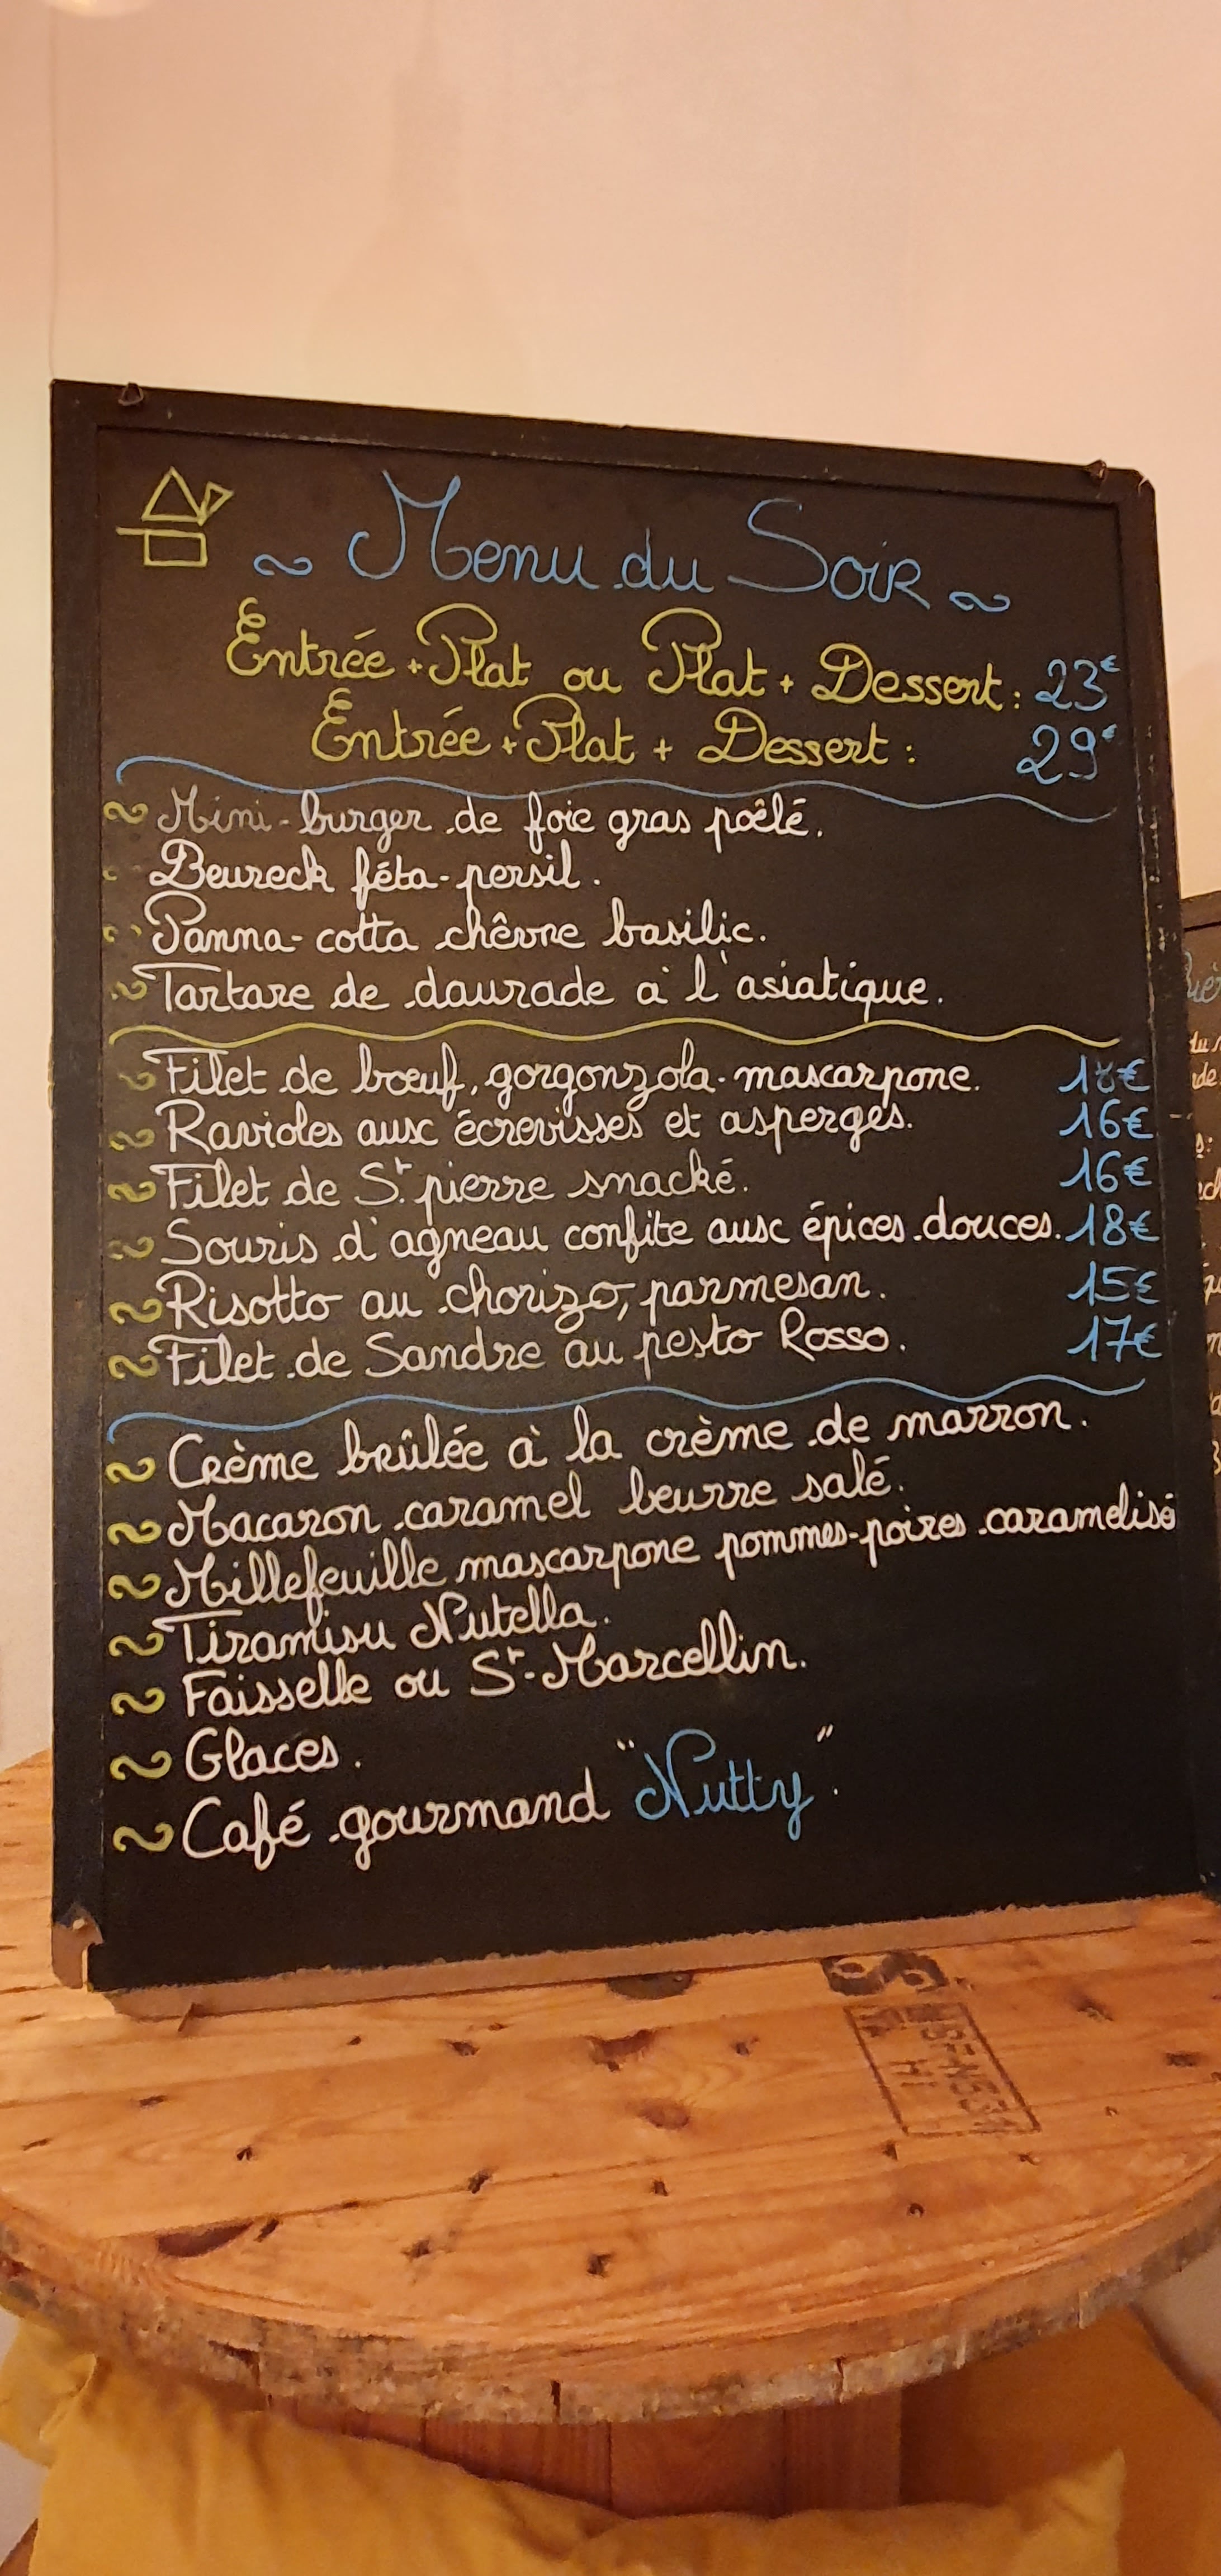 ~ Menu du Soir ~
Entrée + Plat ou Plat + Dessert : 23€
Entrée + Plat + Dessert : 29€
~ Mini-burger de foie gras poêlé.
Beureck féta-persil.
~ Panna-cotta chêvre basilic.
~ Tartare de daurade à l'asiatique.
~ Filet de bœuf, gorgonzola-mascarpone. 18€
~ Ravioles aux écrevisses et asperges. 16€
~ Filet de St pierre snacké. 16€
~ Souris d'agneau confite aux épices douces. 18€
~ Risotto au chorizo, parmesan. 15€
~ Filet de Sandre au pesto Rosso. 17€
~ Crème brûlée à la crème de marron.
~ Macaron caramel beurre salé.
~ Millefeuille mascarpone pommes-poires caramelisé
~ Tiramisu Nutella.
~ Faisselle ou St-Marcellin.
~ Glaces.
~ Café gourmand "Nutty".